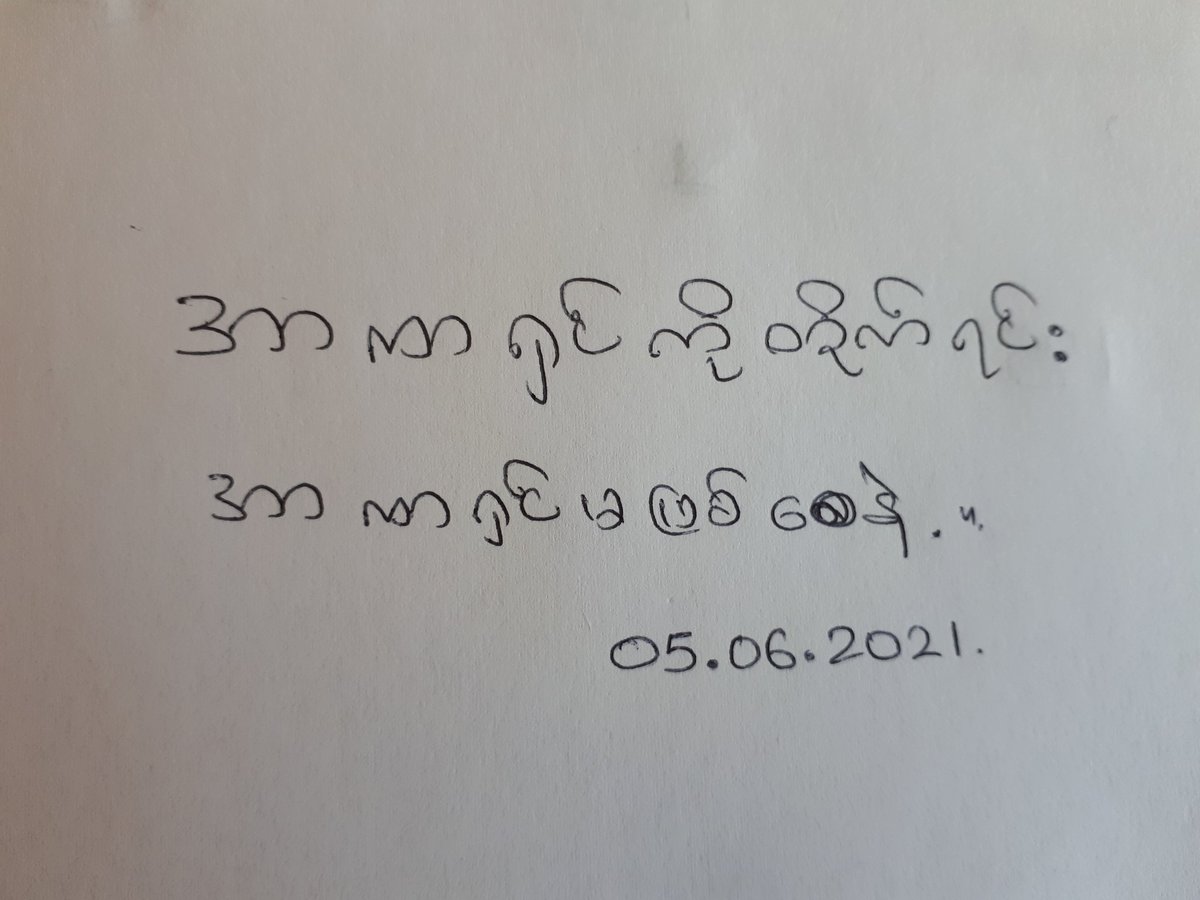 အာဏာရှင်ကိုတိုက်ရင်း
အာဏာရှင်မဖြစ်စေနဲ့.॥
05.06.2021.